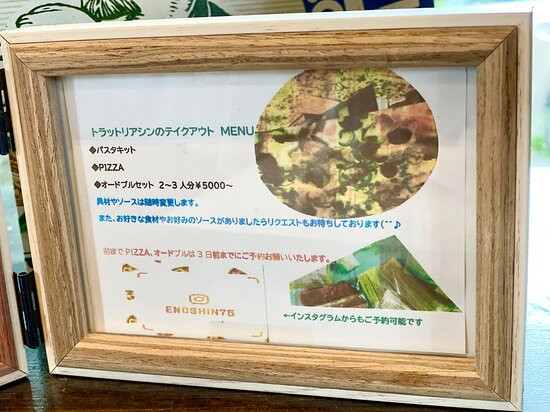 トラットリアシンのテイクアウト MENU
◆パスタキット
◆PIZZA
◆オードブルセット 2~3人分¥5000~
具材やソースは随時変更します。
また、お好きな食材やお好みのソースがありましたらリクエストもお待ちしております(^^♪
前まで PIZZA、オードブルは3日前までにご予約お願いいたします。
ENOSHIN75
←インスタグラムからもご予約可能です